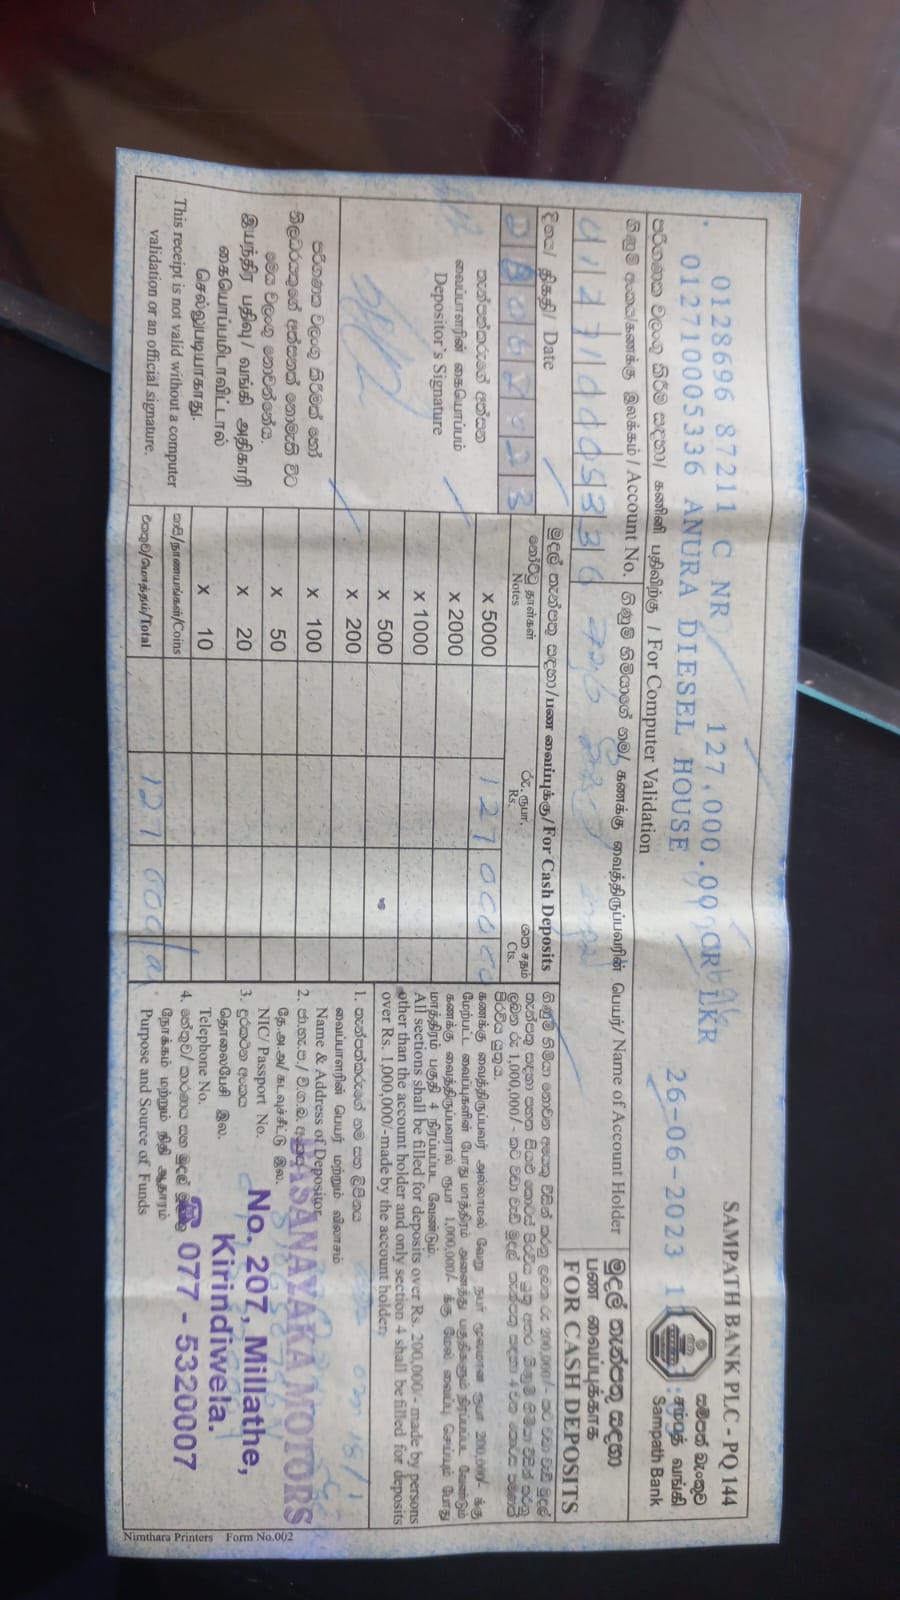 SAMPATH BANK PLC - PQ 144
0128696 87211 C NR 127,000.00 CR LKR 26-06-2023 11
012710005336 ANURA DIESEL HOUSE
සම්පත් බැංකුව
சம்பத் வங்கி
Sampath Bank
පරිගණක වලංගු කිරීම් සඳහා/ கணினி பதிவிற்கு / For Computer Validation
ගිණුම් අංකය/கணக்கு இலக்கம் / Account No.
ගිණුම් හිමියාගේ නම/ கணக்கு வைத்திருப்பவரின் பெயர்/ Name of Account Holder
මුදල් තැන්පතු සඳහා
பண வைப்புக்காக
FOR CASH DEPOSITS
දිනය/ திகதி/ Date
මුදල් තැන්පතු සඳහා/பண வைப்புக்கு/For Cash Deposits
නෝට්ටු தாள்கள்
Notes
රු. ரூபா.
Rs.
ශත சதம்
Cts.
තැන්පත්කරුගේ අත්සන
வைப்பாளரின் கையொப்பம்
Depositor's Signature
x 5000 127 000
x 2000
x 1000
x 500
x 200
x 100
x 50
x 20
x 10
කාසි/நாணயங்கள்/Coins
එකතුව/மொத்தம்/Total 127 000
පරිගණක වලංගු කිරීමක් හෝ
නිලධරයකුගේ අත්සනක් නොමැති විට
මෙය වලංගු නොවන්නේය.
இயந்திர பதிவு/ வங்கி அதிகாரி
கையொப்பமிடாவிட்டால்
செல்லுபடியாகாது.
This receipt is not valid without a computer
validation or an official signature.
கணக்கு வைத்திருப்பவர் அல்லாமல் வேறு நபர் மூலமான ரூபா 200,000/- க்கு
மேற்பட்ட வைப்புகளின் போது மாத்திரம் அனைத்து பகுதிகளும் நிரப்பப்பட வேண்டும்
கணக்கு வைத்திருப்பவரால் ரூபா 1,000,000/- க்கு மேல் வைப்பு செய்யும் போது
மாத்திரம் பகுதி 4 நிரப்பப்பட வேண்டும்.
All sections shall be filled for deposits over Rs. 200,000/- made by persons
other than the account holder and only section 4 shall be filled for deposits
over Rs. 1,000,000/- made by the account holder.
1. තැන්පත්කරුගේ නම සහ ලිපිනය
வைப்பாளரின் பெயர் மற்றும் விலாசம்
Name & Address of Depositor
2. ජා.හැ.ප./ වි.ග.බ. අංකය
தே.அ.அ/கடவுச்சீட்டு இல.
NIC/ Passport No.
3. දුරකථන අංකය
தொலைபேசி இல.
Telephone No.
4.
நோக்கம் மற்றும் நிதி ஆதாரம்
Purpose and Source of Funds
DASANAYAKA MOTORS
No. 207, Millathe,
Kirindiwela.
☎ 077 - 5320007
Nimthara Printers Form No.002